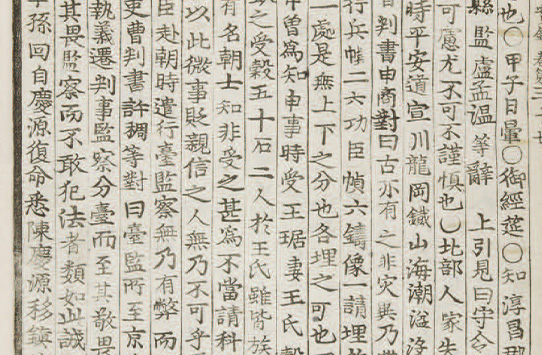 也○甲子日暈○御經筵○知淳昌郡
縣監盧孟溫等辭 上引見曰守令
可慮尤不可不謹慎也○北部人家失
時平安道宣川龍岡鐵山海潮溢
曹判書申商對曰古亦有之非灾異乃
行兵幀二六功臣幀六鑄像一請埋於
一處是無上下之分也各埋之可也
申曾爲知申事時受王琚妻王氏穀
之受穀五十石二人於王氏雖皆族
有名朝士知非受之甚爲不當請科
以此微事貶親信之人無乃不可乎
臣赴朝時遣行臺監察無乃有弊而
吏曹判書許稠等對曰臺監所至京
執義遷判事監察分臺而至其敬畏
其畏監察而不敢犯法者類如此誠
孫回自慶源復命悉陳慶源移鎮